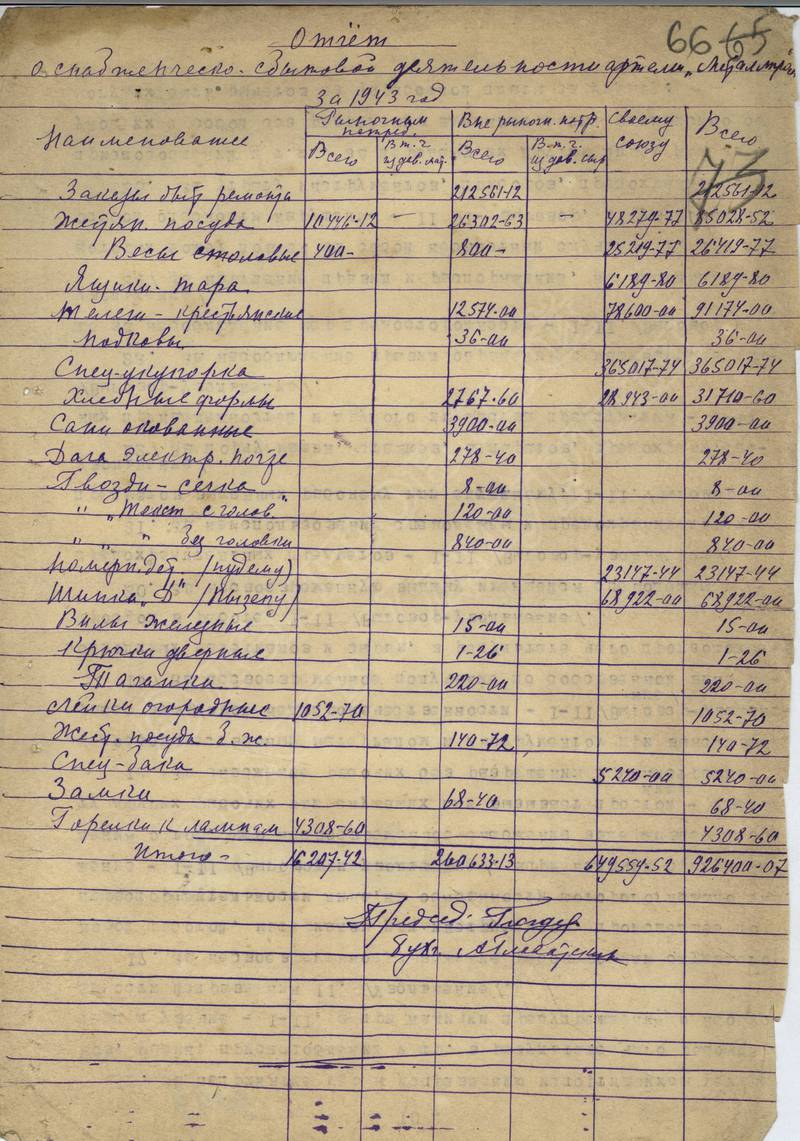 66 65
Отчёт
о снабженческо-сбытовой деятельности артели „Металлтран
за 1943 год
Наименование Рыночным потреб. Вне рыночн. потр. Своему союзу Всего
Всего В т.ч. из дав. мат. Всего В т.ч. из дав. сыр.
73
Заказы быт ремонта 212561-12 212561-12
Жестян. посуда 10446-12 — 26302-63 — 48279-77 85028-52
Весы столовые 400- 800- 25219-77 26419-77
Ящики-тара 6189-80 6189-80
Телеги-крестьянские 12574-00 78600-00 91174-00
Подковы 36-00 36-00
Спец-укупорка 365017-74 365017-74
Хлебные формы 2767-60 28943-00 31710-60
Сани окованные 3900-00 3900-00
электр. 278-40 278-40
Гвозди-сечка 8-00 8-00
" „Текст с голов." 120-00 120-00
" " " без головки 840-00 840-00
23147-44 23147-44
Шпилька „Б" 68922-00 68922-00
Вилы железные 15-00 15-00
Крючки дверные 1-26 1-26
Таганки 220-00 220-00
Лейки огородные 1052-70 1052-70
Жест. посуда б.ж. 140-72 140-72
Спец-бака 5240-00 5240-00
Замки 68-40 68-40
Горелки к лампам 4308-60 4308-60
Итого- 16207-42 260633-13 649559-52 926400-07
Председ:
Бухг.